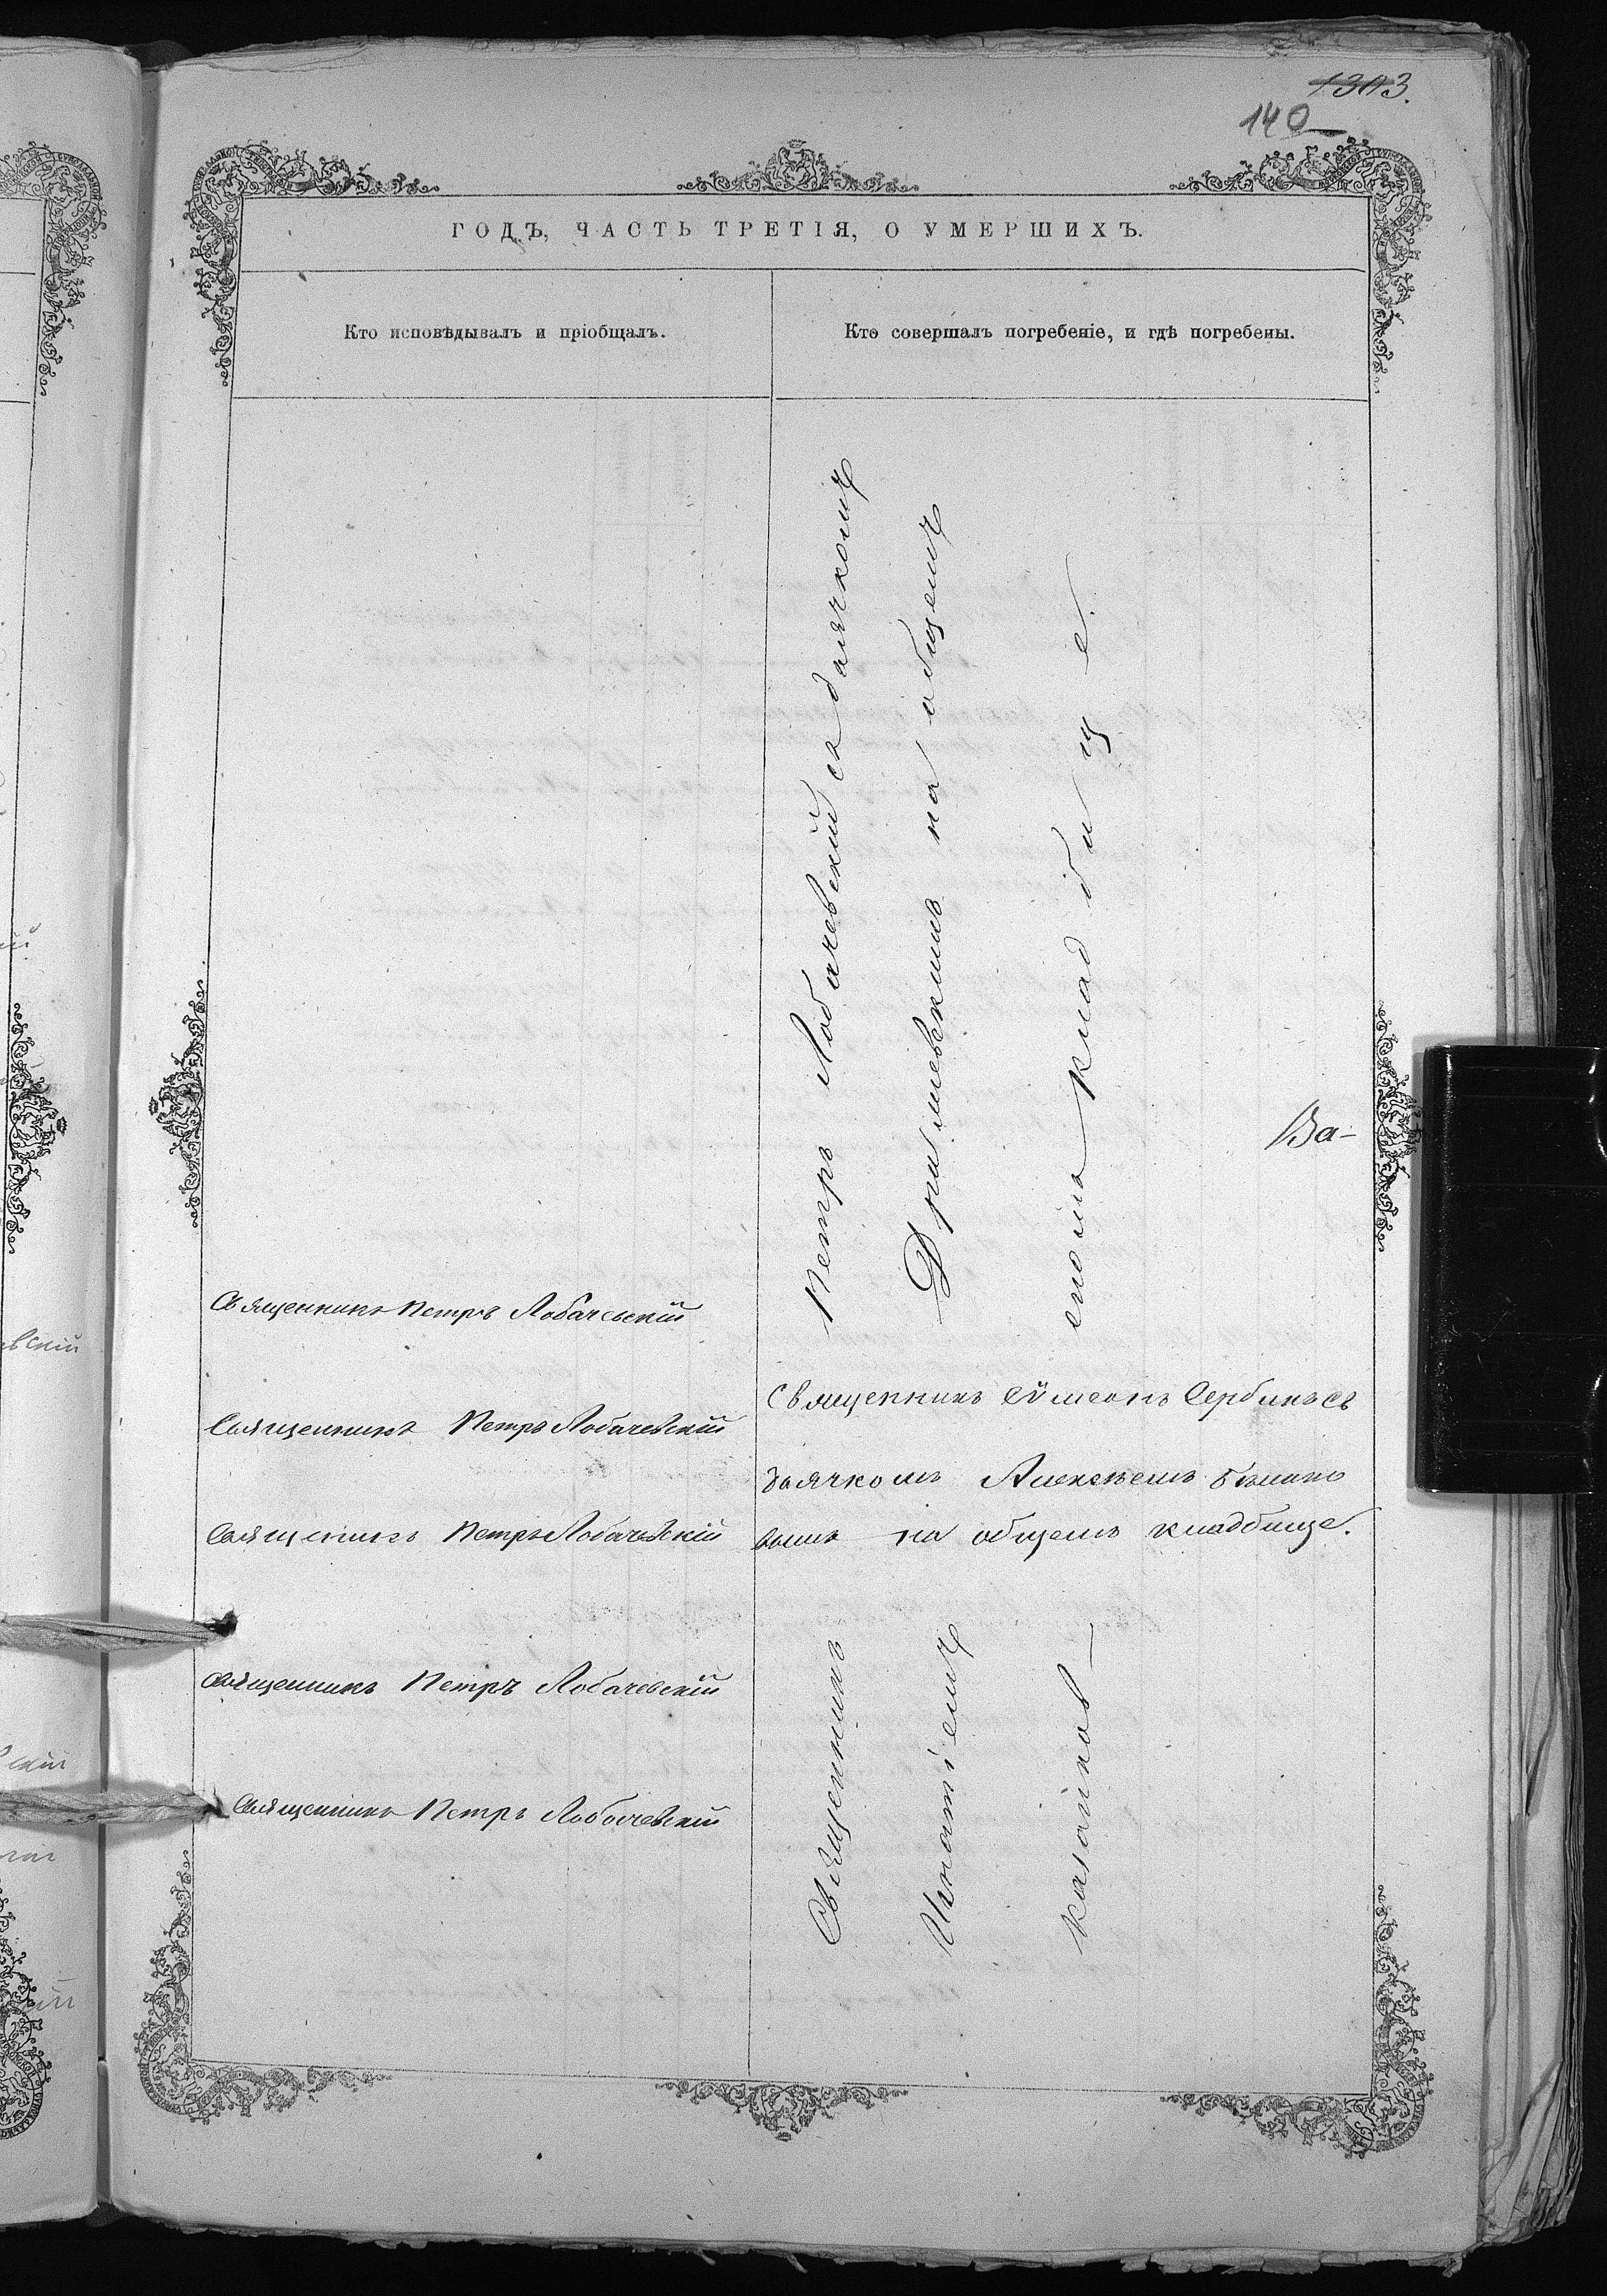 1303.
140
ГОДЪ, ЧАСТЬ ТРЕТІЯ, О УМЕРШИХЪ.
Кто исповѣдывалъ и пріобщалъ.
Кто совершалъ погребеніе, и гдѣ погребены.
Священникъ Петръ Лобачевскій
Священникъ Петръ Лобачевскій
Священникъ Петръ Лобачевскій
Священникъ Петръ Лобачевскій
Священникъ Петръ Лобачевскій
Петръ Лобачевскій съ дьячкомъ
на общемъ
кладбище.
Ва-
Священникъ Сѵмеонъ Сербинъ съ
дьячкомъ Алексѣемъ
на общемъ кладбище.
Священникъ
Игнатіемъ